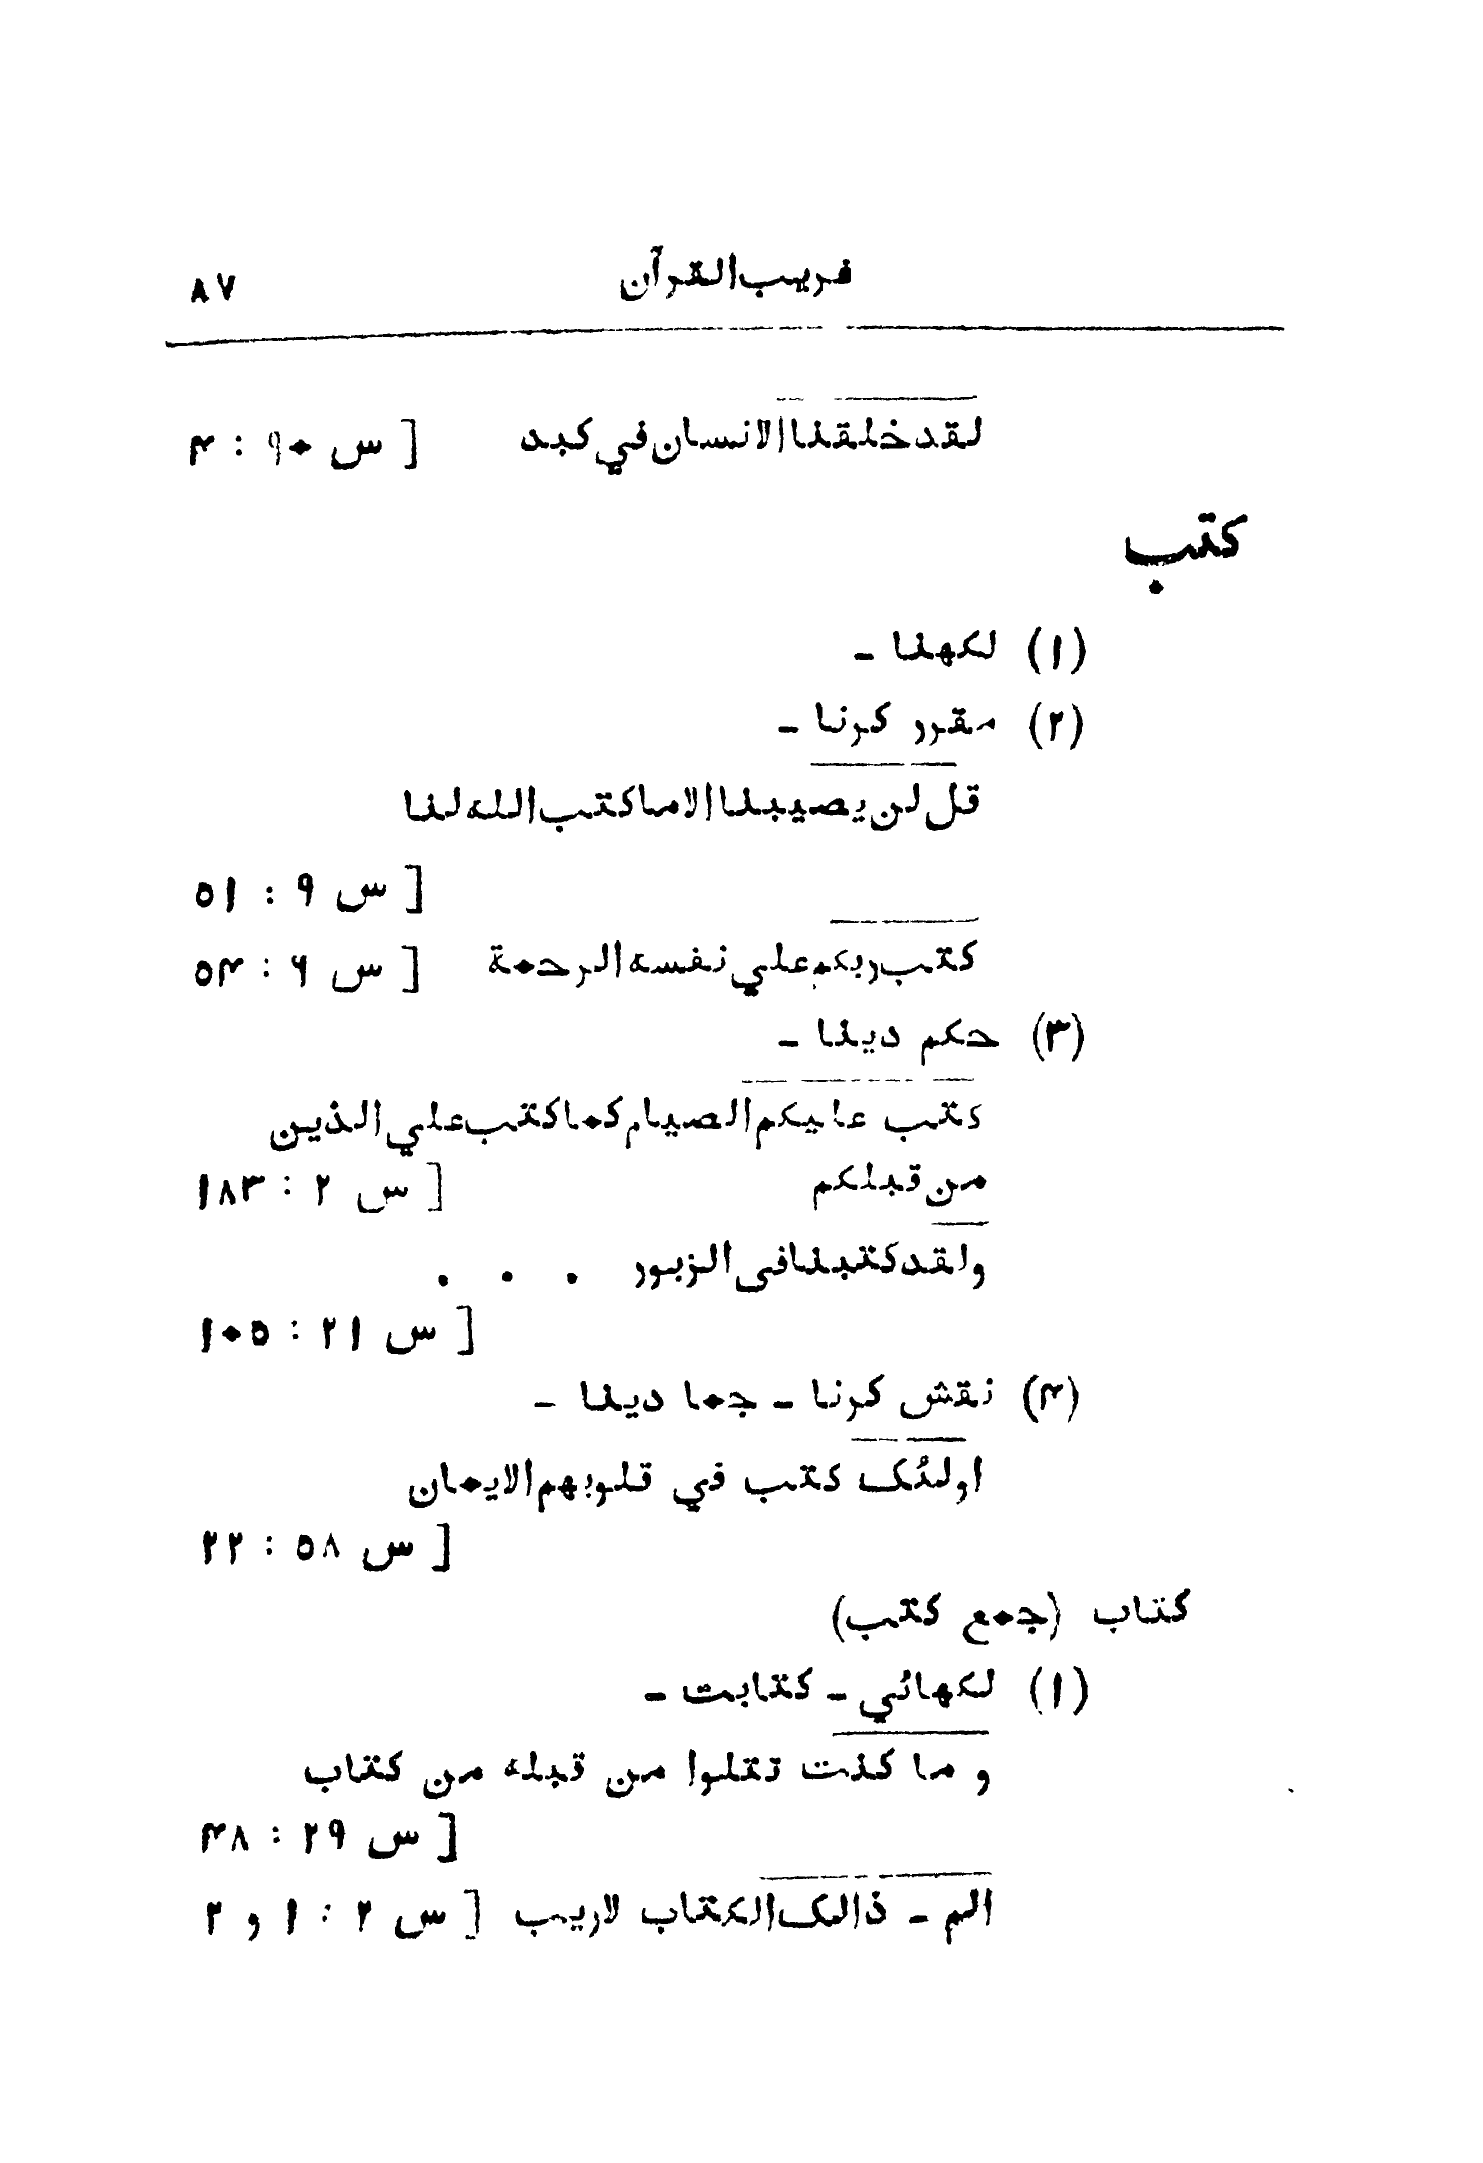 غریب القرآن ۸۷
لقد خلقنا الانسان في كبد [ س ۹۰ : ۴
كتب
(۱) لکھنا -
(۲) مقرر کرنا -
قل لن يصيبنا الا ما كتب الله لنا
[ س ۹ : ۵۱
كتب ربكم علي نفسه الرحمة [ س ۶ : ۵۴
(۳) حکم دینا -
كتب عليكم الصيام كما كتب علي الذين
من قبلكم [ س ۲ : ۱۸۳
ولقد كتبنا في الزبور . . .
[ س ۲۱ : ۱۰۵
(۴) نقش کرنا - جما دینا -
اولئک كتب في قلوبهم الايمان
[ س ۵۸ : ۲۲
کتاب (جمع کتب)
(۱) لکھائي - کتابت -
و ما كنت تتلوا من قبله من كتاب
[ س ۲۹ : ۴۸
الم - ذالک الکتاب لاريب [ س ۲ : ۱ و ۲